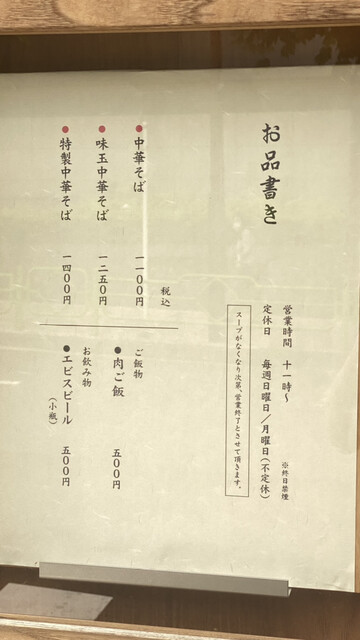 お品書き
営業時間　十一時〜
※終日禁煙
定休日　毎週日曜日／月曜日(不定休)
スープがなくなり次第、営業終了とさせて頂きます。
税込
●中華そば　一一〇〇円
●味玉中華そば　一二五〇円
●特製中華そば　一四〇〇円
ご飯物
●肉ご飯　五〇〇円
お飲み物
●エビスビール　五〇〇円
(小瓶)